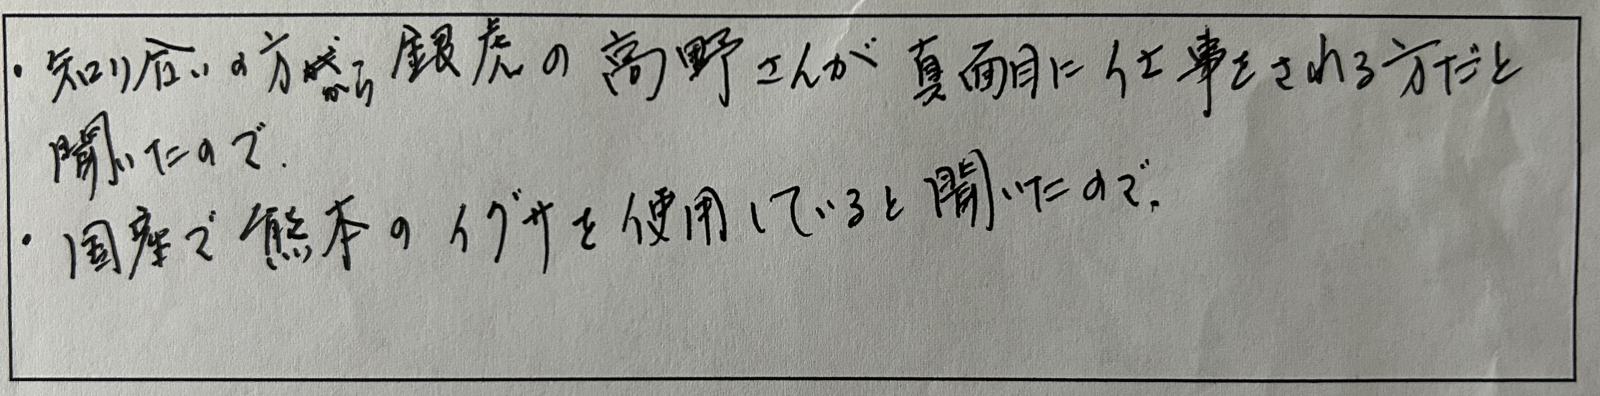 ・知り合いの方から銀虎の高野さんが真面目に仕事をされる方だと
聞いたので.
・国産で熊本のイグサを使用していると聞いたので.